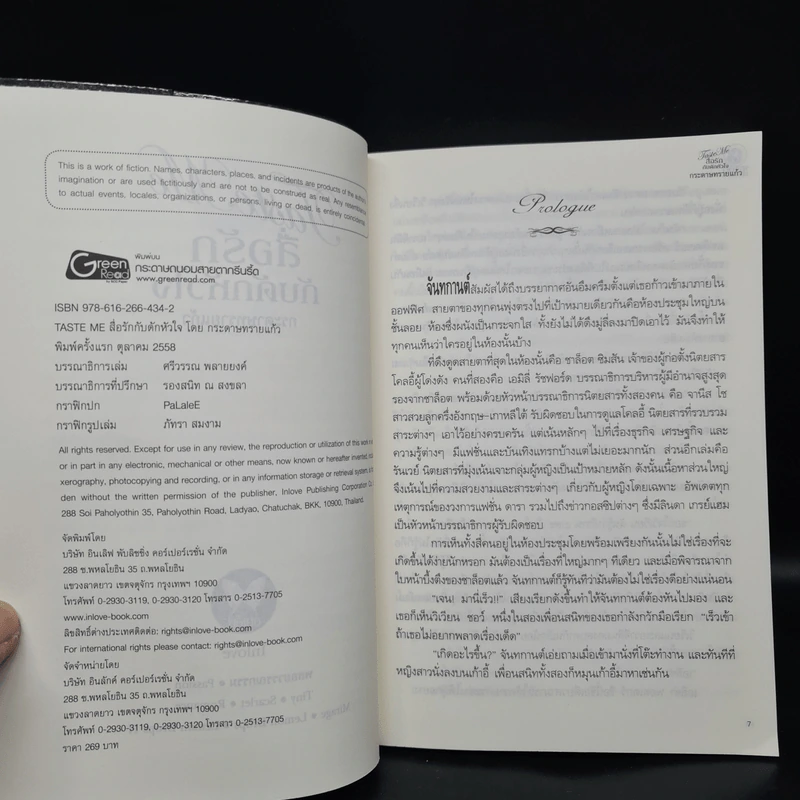 This is a work of fiction. Names, characters, places, and incidents are products of the author's
imagination or are used fictitiously and are not to be construed as real. Any resemblance
to actual events, locales, organizations, or persons, living or dead, is entirely coincidental.
Green
Read
พิมพ์บน
กระดาษถนอมสายตากรีนรี้ด
www.greenread.com
ISBN 978-616-266-434-2
TASTE ME สื่อรักกับดักหัวใจ โดย กระดาษทรายแก้ว
พิมพ์ครั้งแรก ตุลาคม 2558
บรรณาธิการเล่ม ศรีวรรณ พลายยงค์
บรรณาธิการที่ปรึกษา รองสนิท ณ สงขลา
กราฟิกปก PaLaleE
กราฟิกรูปเล่ม ภัทรา สมงาม
All rights reserved. Except for use in any review, the reproduction or utilization of this work in
or in part in any electronic, mechanical or other means, now known or hereafter invented,
xerography, photocopying and recording, or in any information storage or retrieval system, is
den without the written permission of the publisher, Inlove Publishing Corporation Co.
288 Soi Paholyothin 35, Paholyothin Road, Ladyao, Chatuchak, BKK, 10900, Thailand.
จัดพิมพ์โดย
บริษัท อินเลิฟ พับลิชชิ่ง คอร์เปอร์เรชั่น จำกัด
288 ซ.พหลโยธิน 35 ถ.พหลโยธิน
แขวงลาดยาว เขตจตุจักร กรุงเทพฯ 10900
โทรศัพท์ 0-2930-3119, 0-2930-3120 โทรสาร 0-2513-7705
www.inlove-book.com
ลิขสิทธิ์ต่างประเทศติดต่อ: rights@inlove-book.com
For international rights please contact: rights@inlove-book.com
จัดจำหน่ายโดย
บริษัท อินลักค์ คอร์เปอร์เรชั่น จำกัด
288 ซ.พหลโยธิน 35 ถ.พหลโยธิน
แขวงลาดยาว เขตจตุจักร กรุงเทพฯ 10900
โทรศัพท์ 0-2930-3119, 0-2930-3120 โทรสาร 0-2513-7705
ราคา 269 บาท
Taste Me
สื่อรัก
กับดักหัวใจ
กระดาษทรายแก้ว
Prologue
จันทกานต์สัมผัสได้ถึงบรรยากาศอันอึมครึมตั้งแต่เธอก้าวเข้ามาภายใน
ออฟฟิศ สายตาของทุกคนพุ่งตรงไปที่เป้าหมายเดียวกันคือห้องประชุมใหญ่บน
ชั้นลอย ห้องซึ่งผนังเป็นกระจกใส ทั้งยังไม่ได้ดึงมู่ลี่ลงมาปิดเอาไว้ มันจึงทำให้
ทุกคนเห็นว่าใครอยู่ในห้องนั้นบ้าง
ที่ดึงดูดสายตาที่สุดในห้องนั้นคือ ชาล็อต ซิมสัน เจ้าของผู้ก่อตั้งนิตยสาร
โคลอี้ผู้โด่งดัง คนที่สองคือ เอมิลี่ รัชฟอร์ด บรรณาธิการบริหารผู้มีอำนาจสูงสุด
รองจากชาล็อต พร้อมด้วยหัวหน้าบรรณาธิการนิตยสารทั้งสองคน คือ จานีส โช
สาวสวยลูกครึ่งอังกฤษ–เกาหลีใต้ รับผิดชอบในการดูแลโคลอี้ นิตยสารที่รวบรวม
สาระต่างๆ เอาไว้อย่างครบครัน แต่เน้นหลักๆ ไปที่เรื่องธุรกิจ เศรษฐกิจ และ
ความรู้ต่างๆ มีแฟชั่นและบันเทิงแทรกบ้างแต่ไม่เยอะมากนัก ส่วนอีกเล่มคือ
รันเวย์ นิตยสารที่มุ่งเน้นเจาะกลุ่มผู้หญิงเป็นเป้าหมายหลัก ดังนั้นเนื้อหาส่วนใหญ่
จึงเน้นไปที่ความสวยงามและสาระต่างๆ เกี่ยวกับผู้หญิงโดยเฉพาะ อัพเดตทุก
เหตุการณ์ของวงการแฟชั่น ดารา รวมไปถึงข่าวกอสซิปต่างๆ ซึ่งมีลินดา เกรย์แฮม
เป็นหัวหน้าบรรณาธิการผู้รับผิดชอบ
การเห็นทั้งสี่คนอยู่ในห้องประชุมโดยพร้อมเพรียงกันนั้นไม่ใช่เรื่องที่จะ
เกิดขึ้นได้ง่ายนักหรอก มันต้องเป็นเรื่องที่ใหญ่มากๆ ทีเดียว และเมื่อพิจารณาจาก
ใบหน้าบึ้งตึงของชาล็อตแล้ว จันทกานต์ก็รู้ทันทีว่ามันต้องไม่ใช่เรื่องดีอย่างแน่นอน
"เจน! มานี่เร็ว!!" เสียงเรียกดังขึ้นทำให้จันทกานต์ต้องหันไปมอง และ
เธอก็เห็นวิเวียน ชอว์ หนึ่งในสองเพื่อนสนิทของเธอกำลังกวักมือเรียก "เร็วเข้า
ถ้าเธอไม่อยากพลาดเรื่องเด็ด"
"เกิดอะไรขึ้น?" จันทกานต์เอ่ยถามเมื่อเข้ามานั่งที่โต๊ะทำงาน และทันทีที่
หญิงสาวนั่งลงบนเก้าอี้ เพื่อนสนิททั้งสองก็หมุนเก้าอี้มาหาเช่นกัน
7